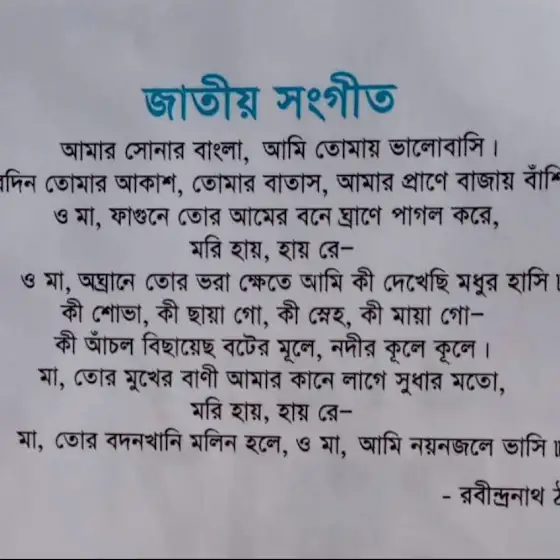 জাতীয় সংগীত
আমার সোনার বাংলা, আমি তোমায় ভালোবাসি।
তোমার আকাশ, তোমার বাতাস, আমার প্রাণে বাজায়
ও মা, ফাগুনে তোর আমের বনে ঘ্রাণে পাগল করে,
মরি হায়, হায় রে–
ও মা, অঘ্রানে তোর ভরা ক্ষেতে আমি কী দেখেছি মধুর হাসি।
কী শোভা, কী ছায়া গো, কী স্নেহ, কী মায়া গো–
কী আঁচল বিছায়েছ বটের মূলে, নদীর কূলে কূলে।
মা, তোর মুখের বাণী আমার কানে লাগে সুধার মতো,
মরি হায়, হায় রে–
মা, তোর বদনখানি মলিন হলে, ও মা, আমি নয়নজলে ভাসি॥
- রবীন্দ্রনাথ